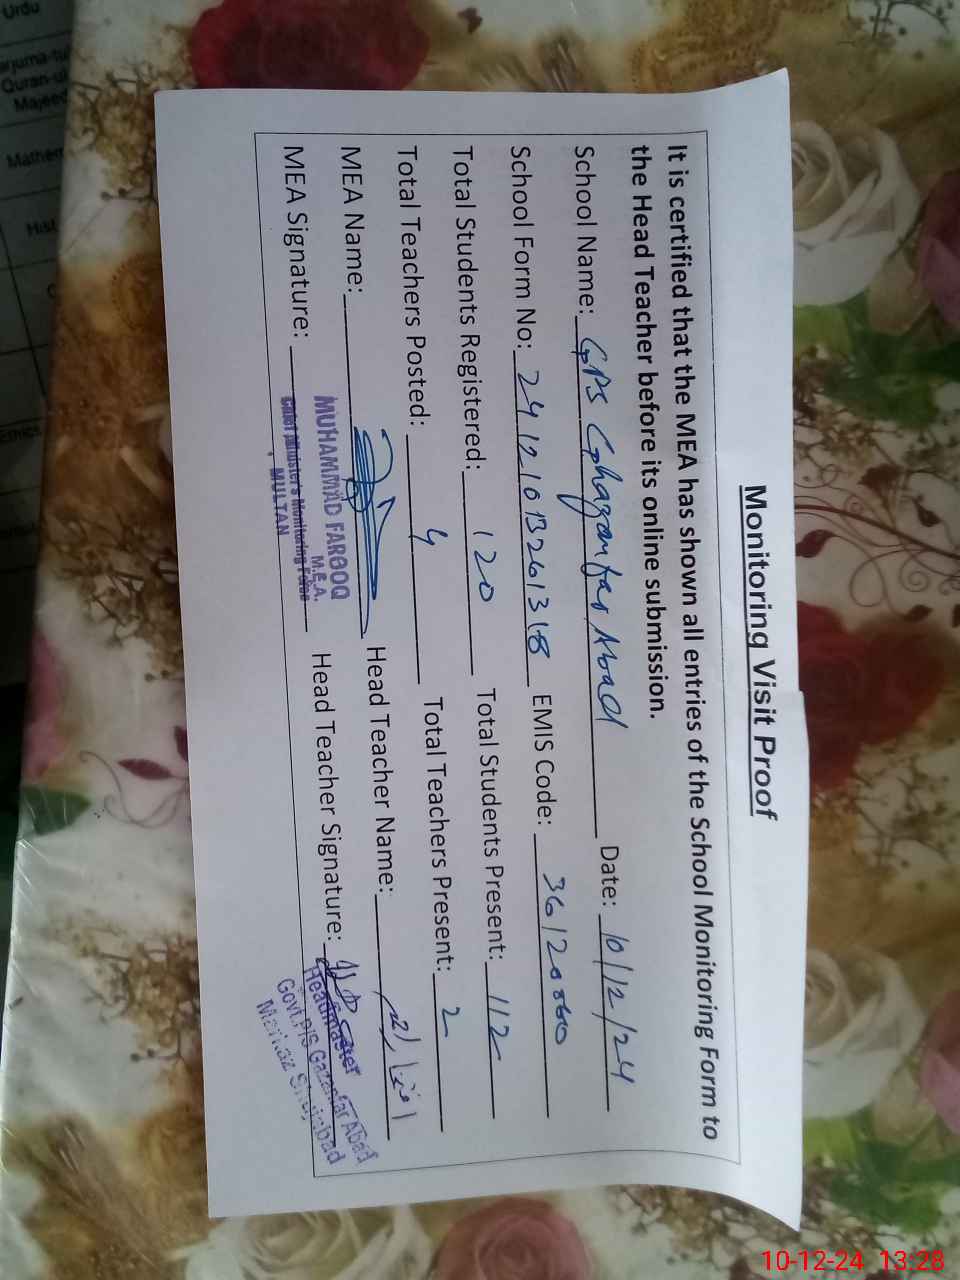 Urdu
Quran-ul
Majeed
Mathem
Hist
Monitoring Visit Proof
It is certified that the MEA has shown all entries of the School Monitoring Form to
the Head Teacher before its online submission.
School Name: GPS Ghazanfar Abad Date: 10/12/24
School Form No: EMIS Code:
Total Students Registered: 120 Total Students Present: 112
Total Teachers Posted: 4 Total Teachers Present: 2
MEA Name: Head Teacher Name:
MEA Signature: Head Teacher Signature:
MUHAMMAD FAROOQ
M.E.A.
Chief Minister's Monitoring Force
MULTAN
Headmaster
Govt.P/S Gazanfar Abad
10-12-24 13:28